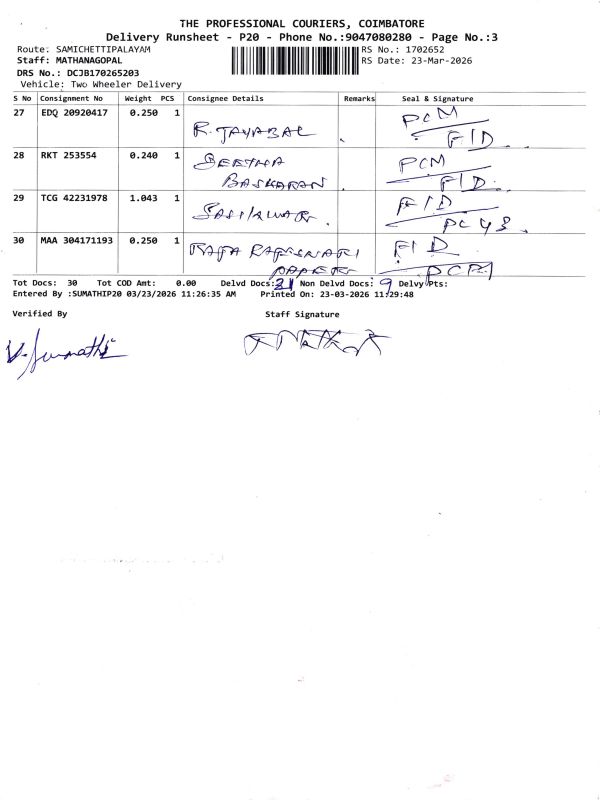 THE PROFESSIONAL COURIERS, COIMBATORE
Delivery Runsheet - P20 - Phone No.:9047080280 - Page No.:3
Route: SAMICHETTIPALAYAM RS No.: 1702652
Staff: MATHANAGOPAL RS Date: 23-Mar-2026
DRS No.: DCJB170265203
Vehicle: Two Wheeler Delivery
S No Consignment No Weight PCS Consignee Details Remarks Seal & Signature
27 EDQ 20920417 0.250 1 R. JAYABAL PCM
FID
28 RKT 253554 0.240 1 GEETHA PCM
BASKARAN FID
29 TCG 42231978 1.043 1 FID
30 MAA 304171193 0.250 1 FID
Tot Docs: 30 Tot COD Amt: 0.00 Delvd Docs: 21 Non Delvd Docs: 9 Delvy Pts:
Entered By :SUMATHIP20 03/23/2026 11:26:35 AM Printed On: 23-03-2026 11:29:48
Verified By Staff Signature